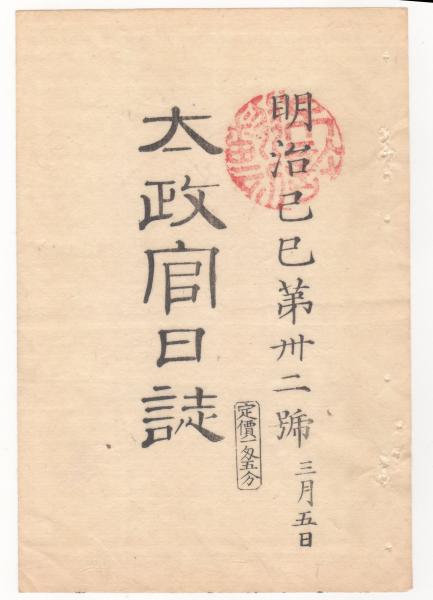 明治己巳第卅二號 三月五日
太政官日誌
定價一匁五分